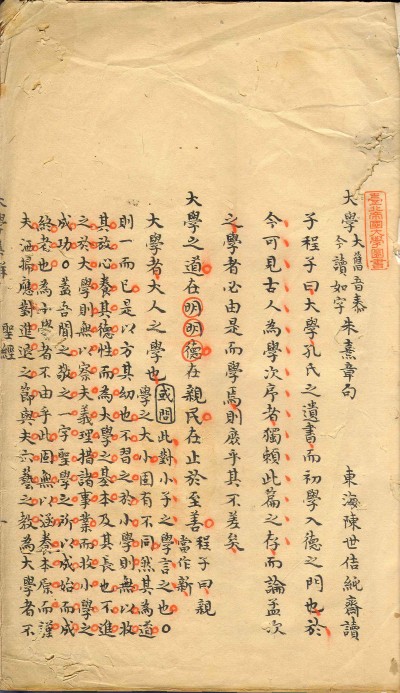 臺北帝國大學圖書
大學 大舊音泰今讀如字 朱熹章句 東海陳世佶絅齋讀
子程子曰大學孔氏之遺書而初學入德之門也於
今可見古人為學次序者獨賴此篇之存而論孟次
之學者必由是而學焉則庶乎其不差矣
大學之道在明明德在親民在止於至善 程子曰親當作新
大學者大人之學也 或問 此對小子之學言之也○學之大小固有不同然其為道
則一而已是以方其幼也不習之於小學則無以收
其放心養其德性而為大學之基本及其長也不進
之於大學則無以察夫義理措諸事業而收小學之
成功○蓋吾聞之敬之一字聖學之所以成始而成
終者也為小學者不由乎此固無以涵養本原而謹
夫洒掃應對進退之節與夫六藝之教為大學者不
聖經